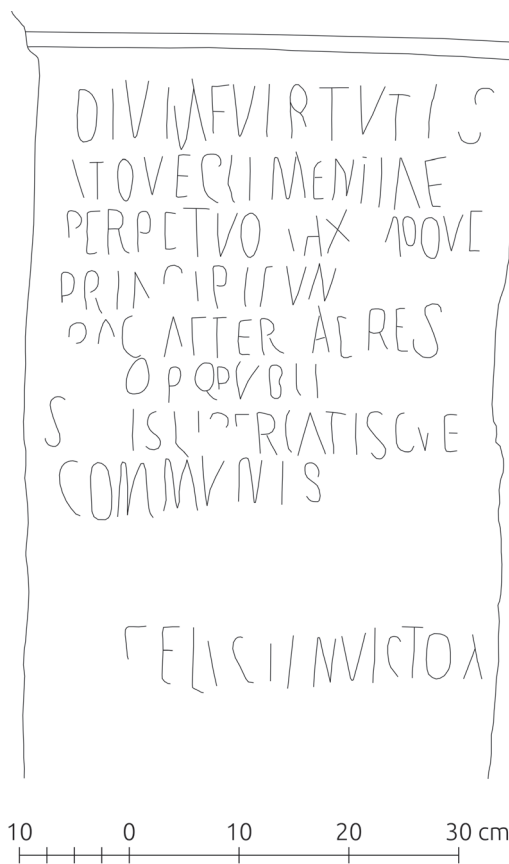 DIVINAEVIRTVTIS
ITOVECLIMENIIAE
PERPETVO
PRINCIPI IVN
PAC ATTER ACRES
O P QPVBLI
S ISLIBERTATISQVE
COMMVNIS
FELICI INVICTO A
10 0 10 20 30 cm